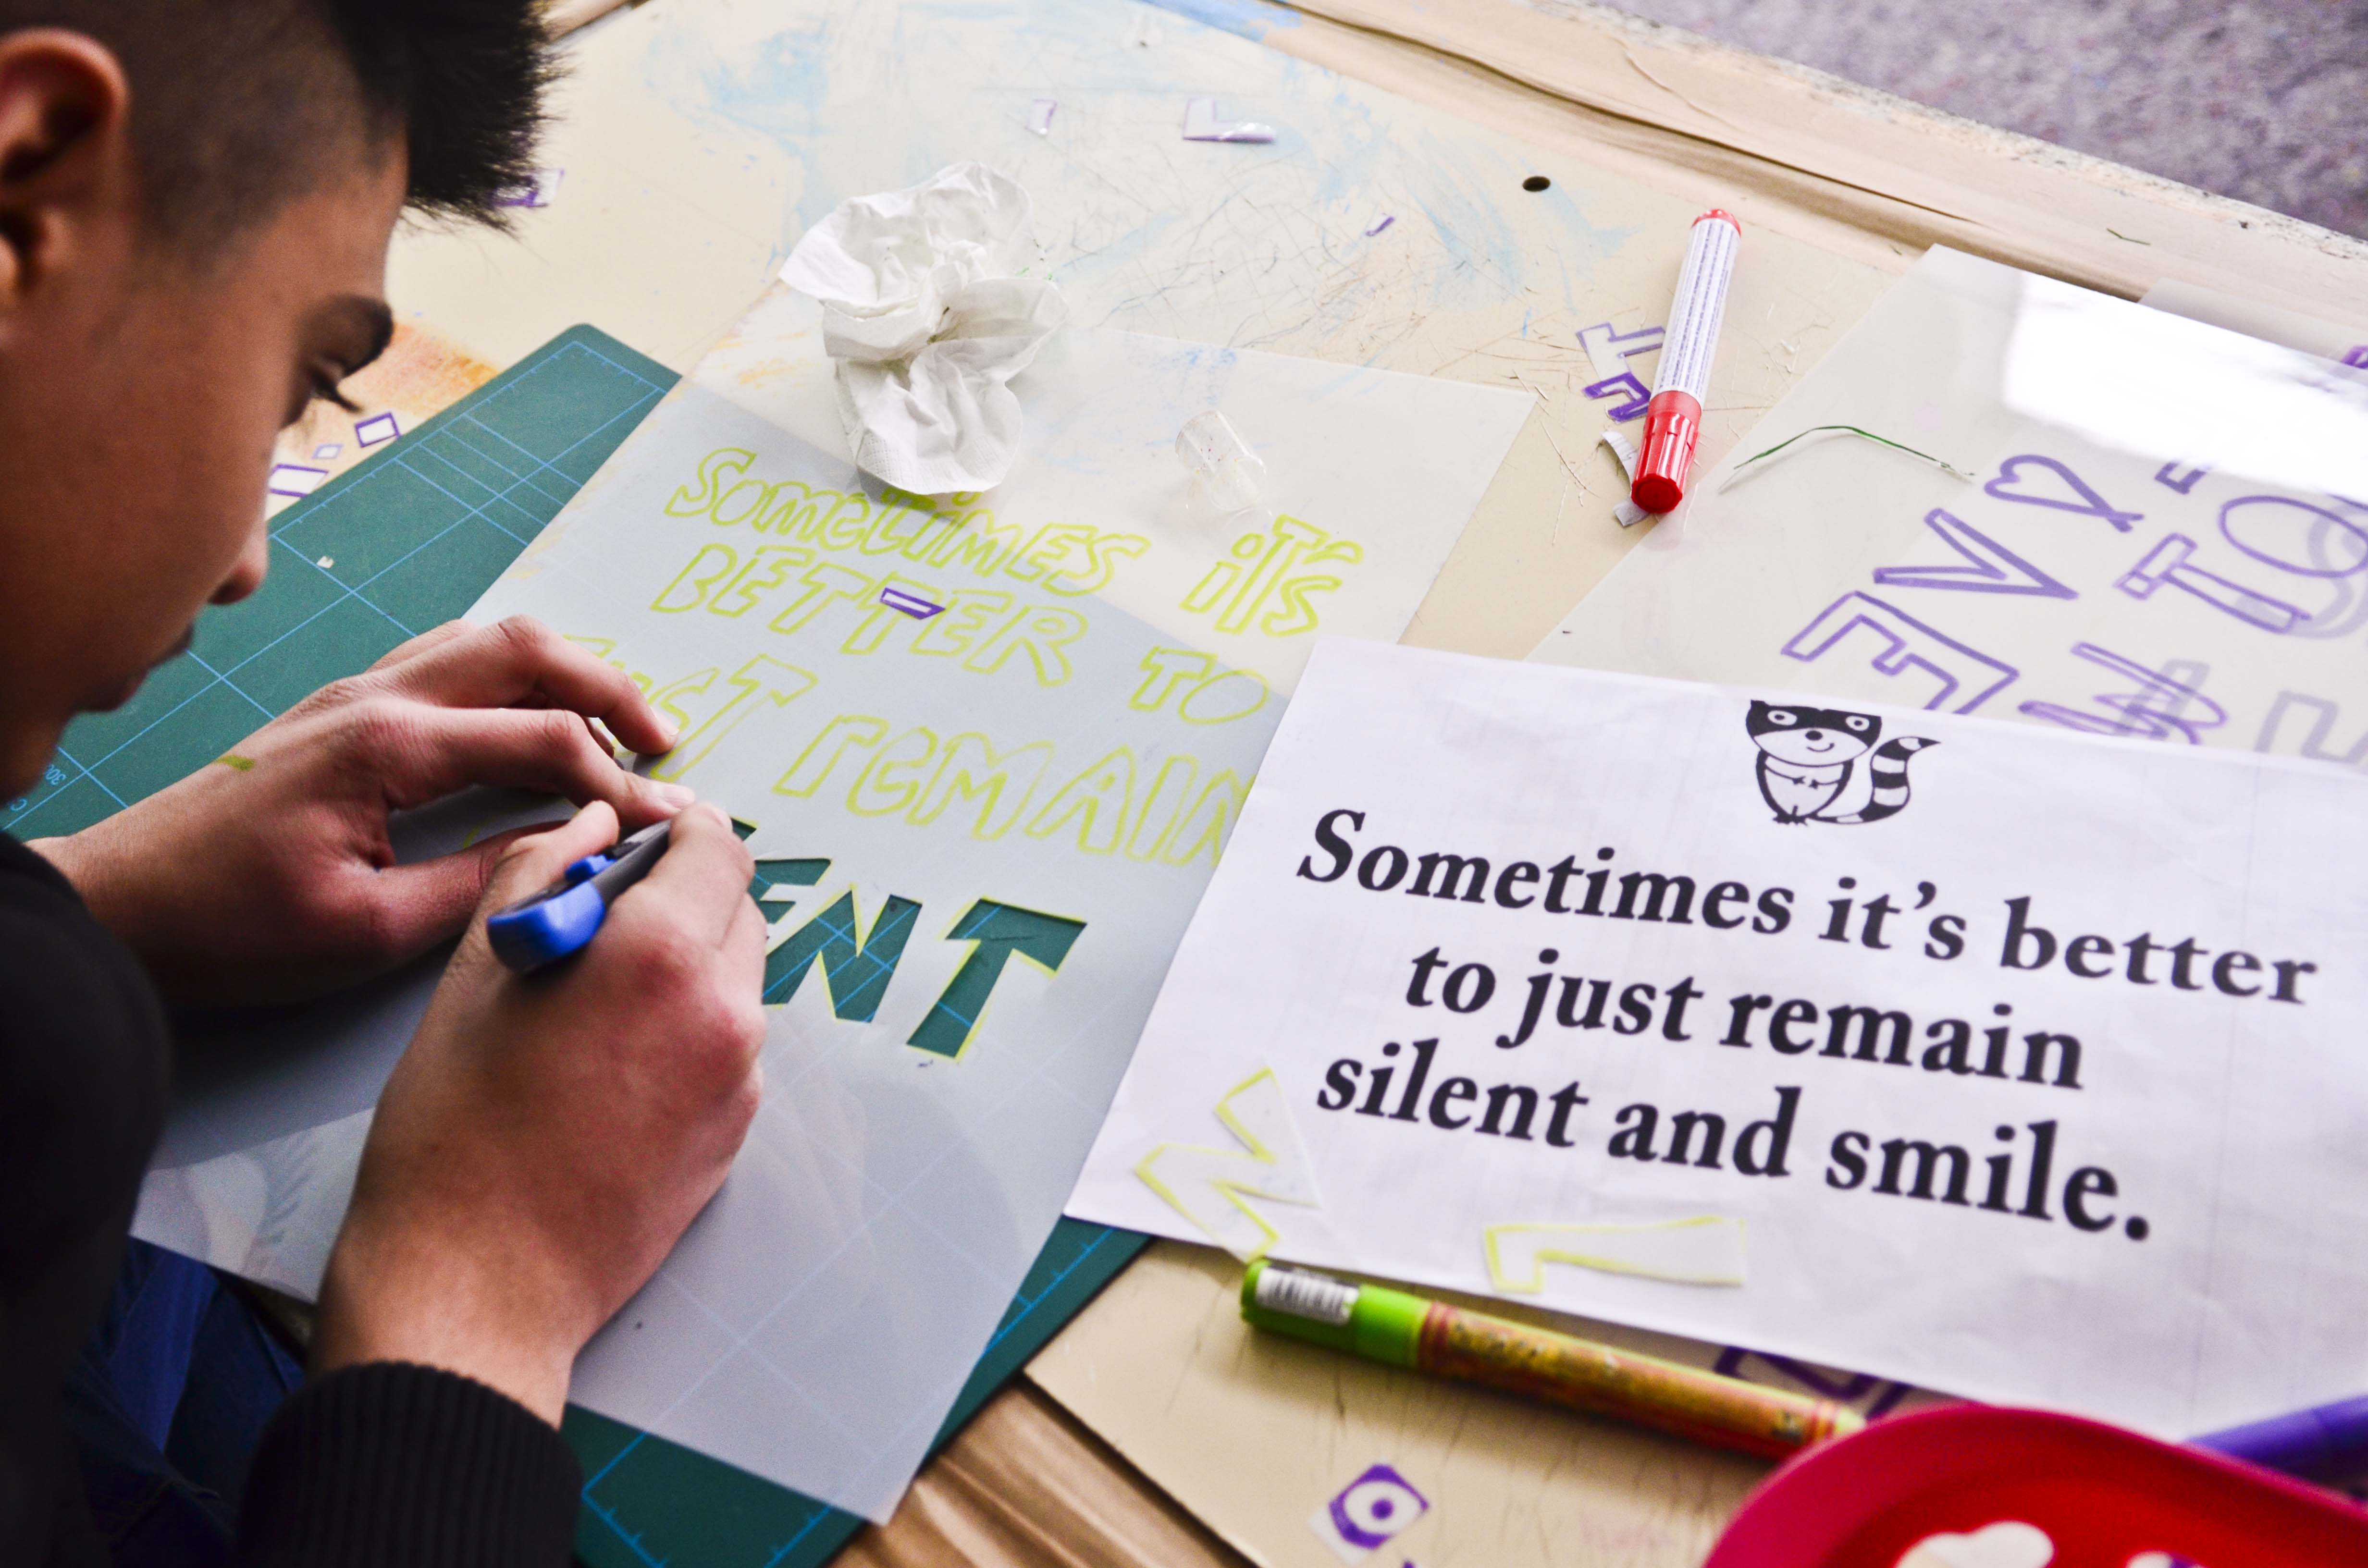 SometiMES iT's
BETTER TO
JusT reMAIN
ENT
Sometimes it's better
to just remain
silent and smile.